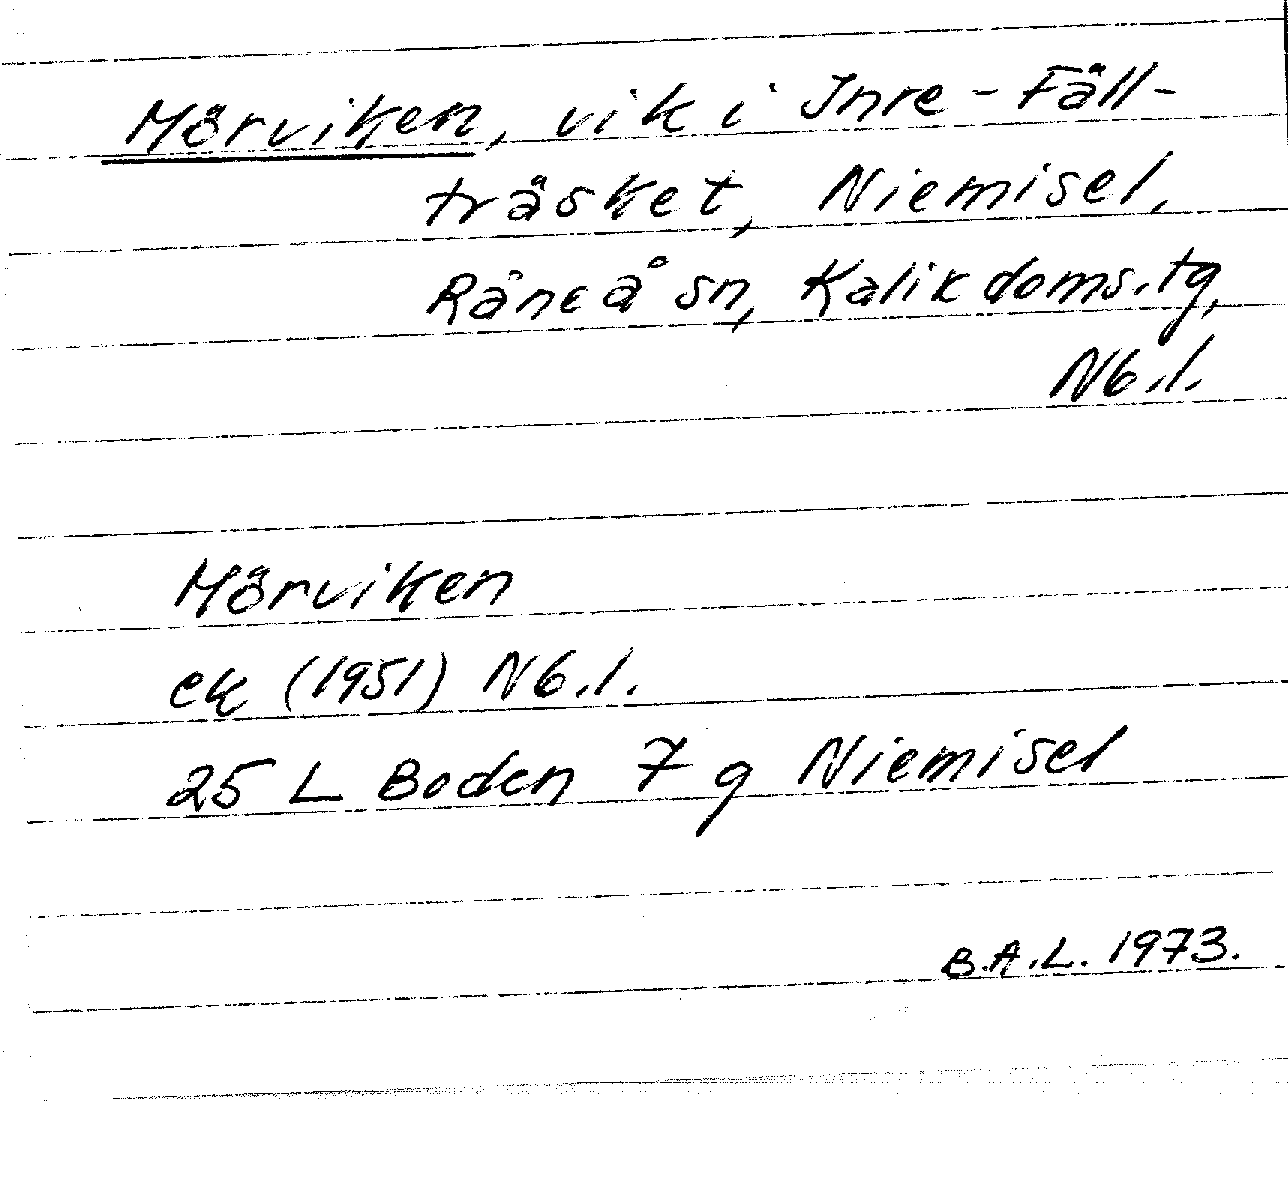 Mörviken, vik i Inre-Fäll-
träsket, Niemisel,
Råneå sn, Kalix doms.tg,
Nb.l.
Mörviken
ek (1951) Nb.l.
25 L Boden 7 g Niemisel
B.A.L. 1973.